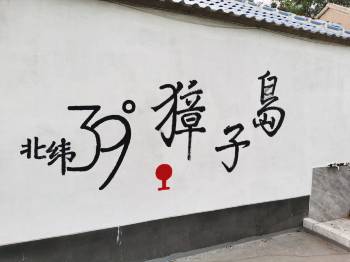 北纬39° 獐子岛